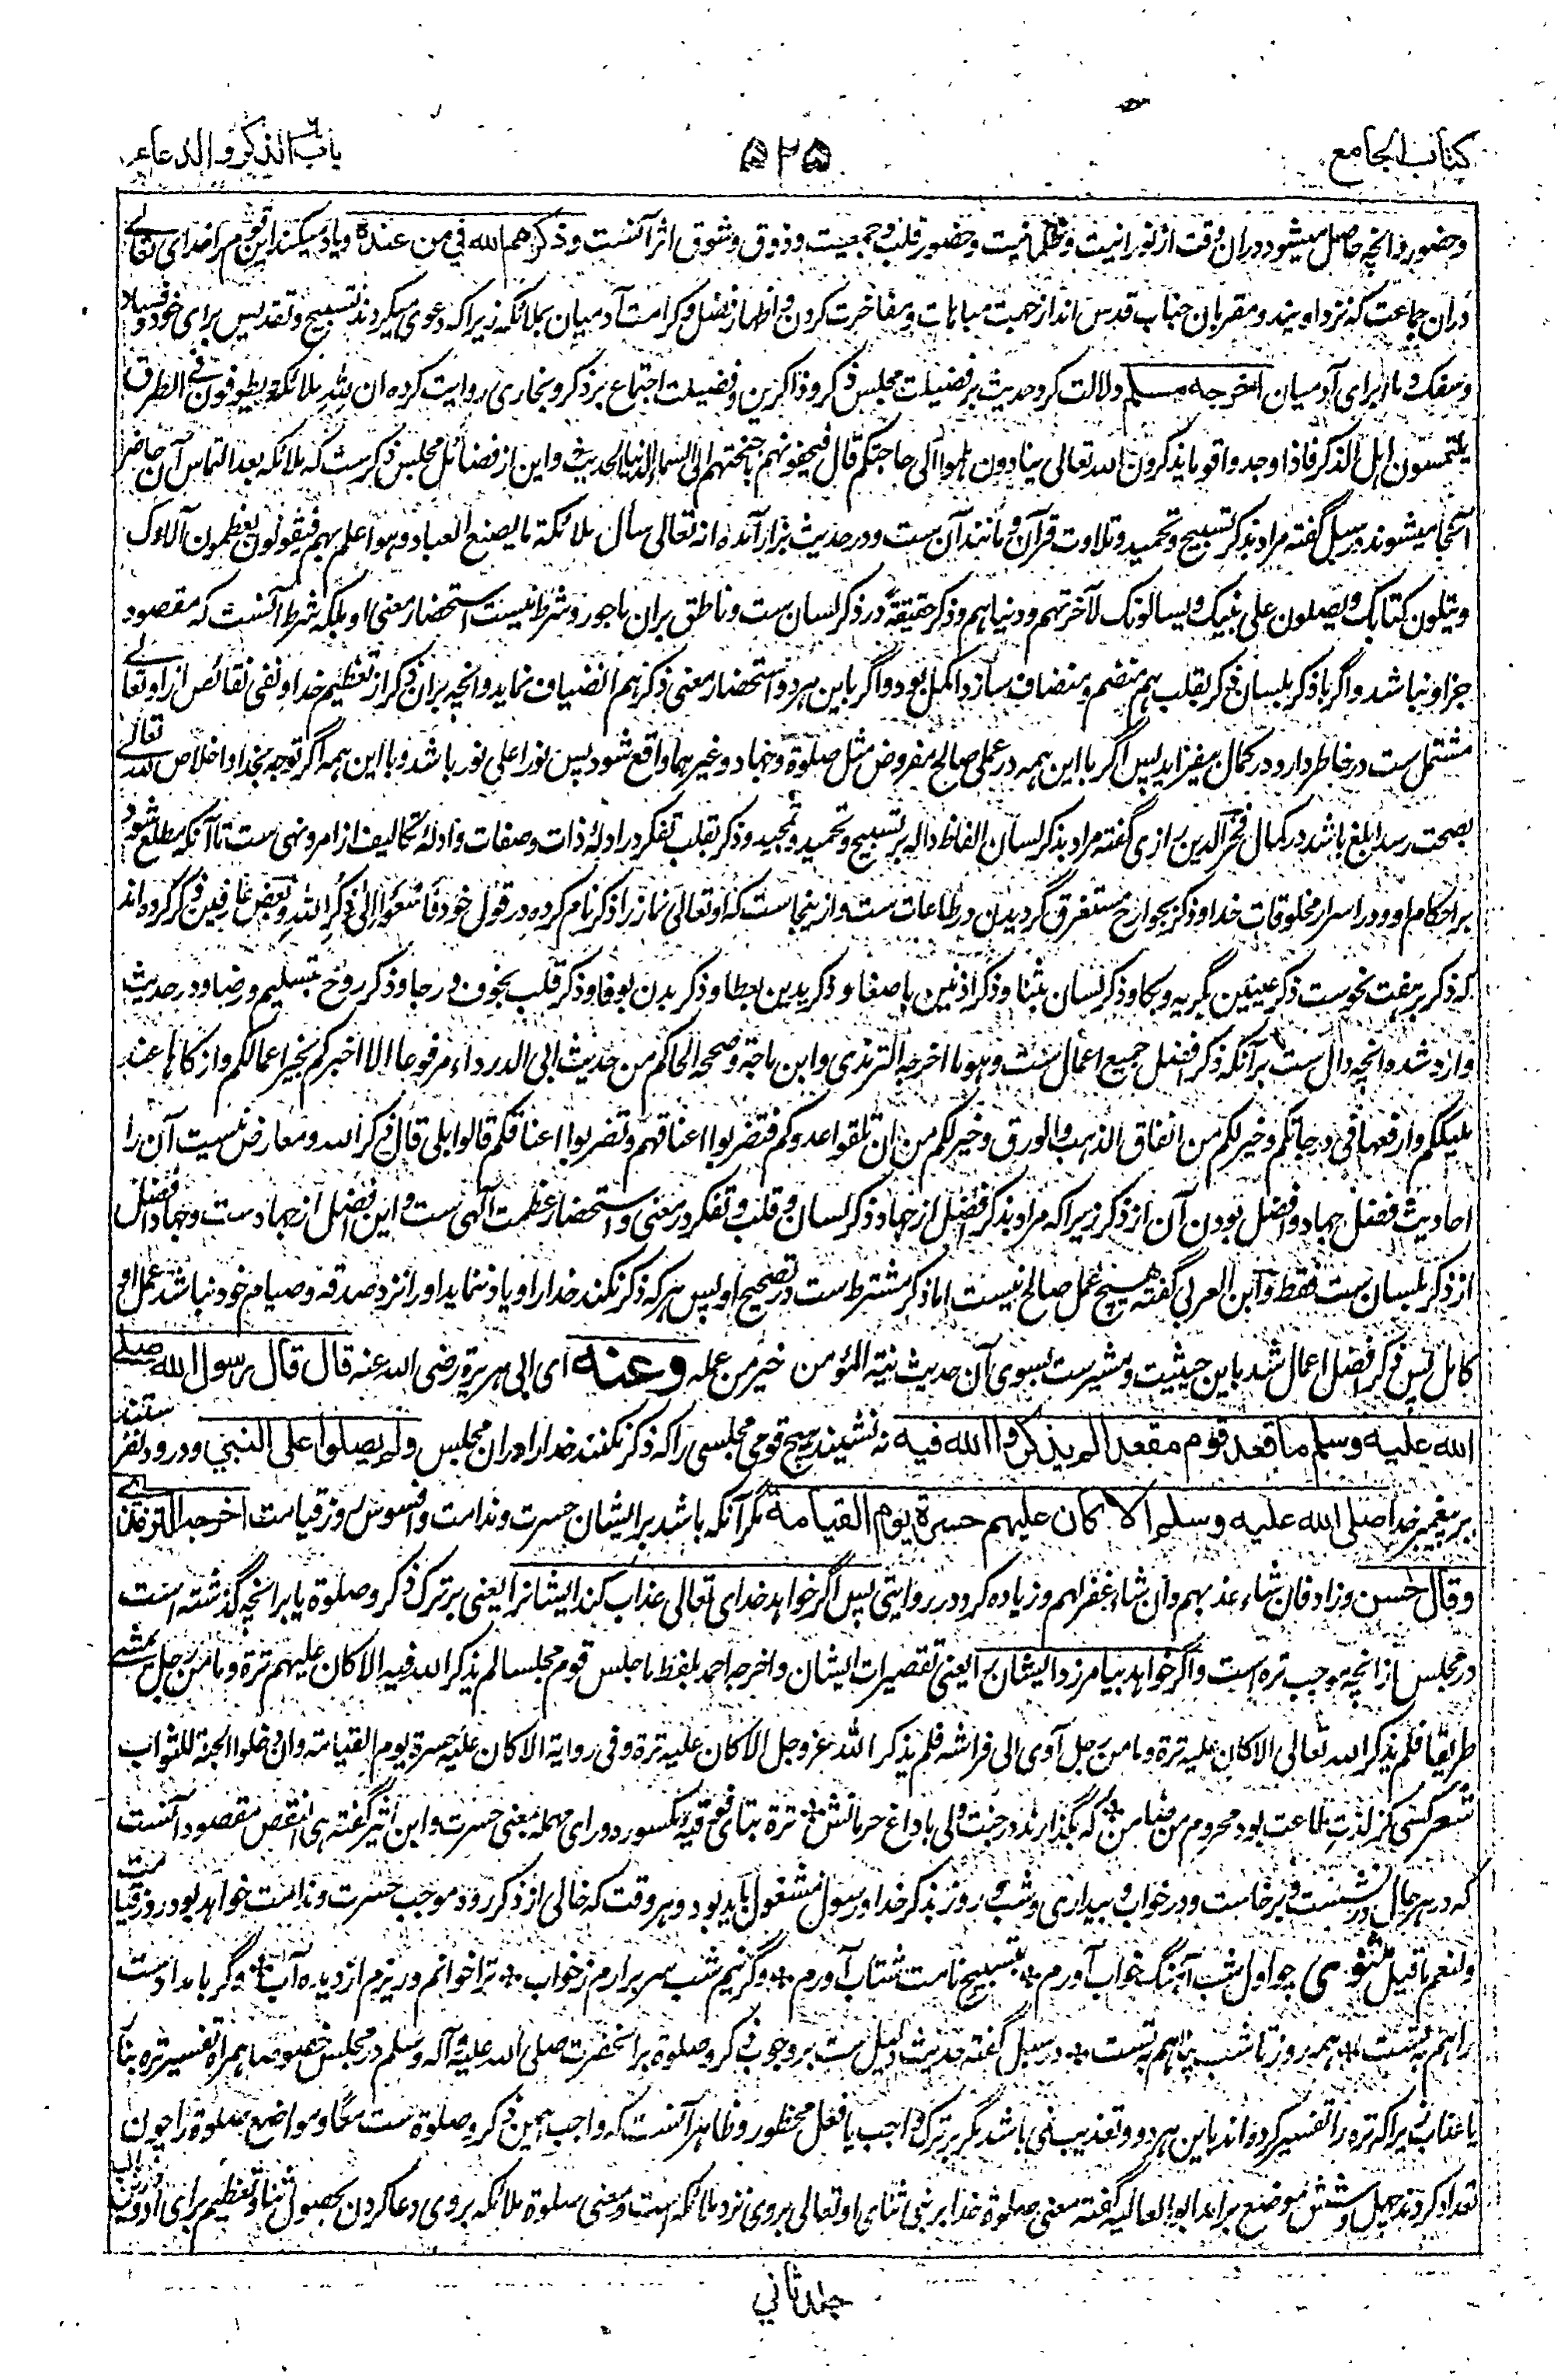 کتاب الجامع
۵۲۵
باب الذکر والدعاء
وحضور وانچه حاصل میشود دران وقت از نورانیت وطمانیت وحضور قلب وجمعیت وذوق وشوق اثر آنست وذکرهم الله فی من عنده ویاد میکند این قوم را خدای تعالے
دران جماعت که نزد اویند ومقربان جناب قدس اند از جهت مباهات ومفاخرت کردن واظهار فضل وکرامت آدمیان بملائکه زیراکه دعوی میکردند تسبیح وتقدیس برای خود وفساد
وسفک دما از برای آدمیان اخرجه مسلم دلالت کرد حدیث بر فضیلت مجلس ذکر وذاکرین وفضیلت اجتماع بر ذکر وبخاری روایت کرده ان لله ملائکة یطوفون فے الطرق
یلتمسون اهل الذکر فاذا وجدوا قوما یذکرون الله تعالی ینادون هلموا الی حاجتکم قال فیحفونهم باجنحتهم الی السماء الدنیا الحدیث واین از فضائل مجلس ذکرست که ملائکه بعد التماس آن حاضر
آنجا میشوند در سبل گفته مراد بذکر تسبیح وتحمید وتلاوت قرآن ومانند آن ست ودر حدیث بزار آمده انه تعالی سأل ملائکته ما یصنع العباد وهو اعلم بهم فیقولون یعظمون آلاءک
ویتلون کتابک ویصلون علی نبیک ویسالونک لآخرتهم ودنیاهم وذکر حقیقةً در ذکر لسان ست وناطق بران ماجور وشرط نیست استحضار معنی او بلکه شرط آنست که مقصود
جز او نباشد واگر با ذکر بلسان ذکر بقلب هم منضم ومنضاف سازد اکمل بود واگر باین هر دو استحضار معنی ذکر هم انضیاف نماید وانچه بران ذکر از تعظیم خدا ونفی نقائص از او تعالے
مشتمل ست در خاطر دارد در کمال بیفزاید پس اگر با این همه در عملی صالح مفروض مثل صلوة وجهاد وغیرهما واقع شود پس نورا علی نور باشد وبا این همه اگر توجه بخدا واخلاص لله تعالے
بصحت رسد ابلغ باشد در کمال فخر الدین رازی گفته مراد بذکر لسان الفاظ داله بر تسبیح وتحمید وتمجید وذکر بقلب تفکر در ادلۀ ذات وصفات وادلۀ تکالیف از امر ونهی ست تا آنکه مطلع شود
بر احکام او ودر اسرار مخلوقات خدا وذکر بجوارح مستغرق گردیدن در طاعات ست وازینجاست که او تعالی نماز را ذکر نام کرده در قول خود فَاسْعَوْا اِلٰی ذِکْرِ اللهِ وبعض عارفین ذکر کرده اند
که ذکر بر هفت نحوست ذکر عینین بگریه وبکا وذکر لسان بثنا وذکر اذنین باصغا وذکر یدین بعطا وذکر بدن بوفا وذکر قلب بخوف ورجا وذکر روح بتسلیم ورضا ودر حدیث
وارد شده انچه دال ست برآنکه ذکر افضل جمیع اعمال ست وهو ما اخرجه الترمذی وابن ماجة وصححه الحاکم من حدیث ابی الدرداء مرفوعا الا اخبرکم بخیر اعمالکم وازکاها عند
ملیککم وارفعها فی درجاتکم وخیر لکم من انفاق الذهب والورق وخیر لکم من ان تلقوا عدوکم فتضربوا اعناقهم وتضربوا اعناقکم قالوا بلی قال ذکر الله ومعارض نیست آن را
احادیث فضل جهاد وافضل بودن آن از ذکر زیراکه مراد بذکر افضل از جهاد ذکر لسان وقلب وتفکر در معنی واستحضار عظمت آلهی ست واین افضل از جهادست وجهاد افضل
از ذکر بلسان ست فقط وابن العربی گفته هیچ عمل صالح نیست اما ذکر مشترط ست در تصحیح او پس هر که ذکر نکند خدا را ویاد ننماید او را نزد صدقه وصیام خود نباشد عمل او
کامل پس ذکر افضل اعمال شد باین حیثیت ومشیرست بسوی آن حدیث نیّة المؤمن خیر من عمله وعنه ای ابی هریرة رضی الله عنه قال قال رسول الله صلے
الله علیه وسلم ما قعد قوم مقعدا لم یذکروا الله فیه نه نشینند هیچ قومی مجلسی را که ذکر نکنند خدا را دران مجلس ولم یصلوا علی النبی ودرود نفرستند
بر پیغمبر خدا صلی الله علیه وسلم الا کان علیهم حسرة یوم القیامة مگر آنکه باشد بر ایشان حسرت وندامت وافسوس روز قیامت اخرجه الترمذے
وقال حسن وزاد فان شاء عذبهم وان شاء غفر لهم وزیاده کرد در روایتی پس اگر خواهد خدای تعالی عذاب کند ایشانرا یعنی بر ترک ذکر وصلوة یا بر انچه گذشته است
در مجلس از انچه موجب تره است واگر خواهد بیامرزد ایشان را یعنی تقصیرات ایشان واخرجه احمد بلفظ ما جلس قوم مجلسا لم یذکر الله فیه الا کان علیهم ترة وما من رجل یمشے
طریقا فلم یذکر الله تعالی الا کان علیه ترة وما من رجل آوی الی فراشه فلم یذکر الله عز وجل الا کان علیه ترة وفی روایة الا کان علیه حسرة یوم القیامة وان دخلوا الجنة للثواب
شعر کسی کز لذت طاعت بود محروم من ضامن * که بگذارند در جنت ولی با داغ حرمانش * ترة بتای فوقیه مکسور ودو رای مهمله بمعنی حسرت وابن اثیر گفته هی النقص مقصود آنست
که در هر حال در نشست وبرخاست ودر خواب وبیداری وشب وروز بذکر خدا ورسول مشغول باید بود وهر وقت که خالی از ذکر رود موجب حسرت وندامت خواهد بود روز قیامت
ولنعم ما قیل مثنوی چو اول شب آهنگ خواب آورم * بتسبیح نامت شتاب آورم * وگر نیم شب سر برارم ز خواب * ترا خوانم وریزم از دیده آب * وگر بامدادست
راهم بتست * همه روز تا شب پناهم بتست * در سبل گفته حدیث دلیل ست بر وجوب ذکر وصلوة بر آنحضرت صلی الله علیه وآله وسلم در مجلس خصوصا همراه تفسیر تره بنار
یا عذاب زیراکه تره را تفسیر کرده اند باین هر دو وتعذیب نمی باشد مگر بر ترک واجب یا فعل محظور وظاهر آنست که واجب همین ذکر وصلوة ست معا ومواضع صلوة را چون
تعداد کردند چهل وشش موضع برآمد ابو العالیه گفته معنی صلوة خدا بر نبی ثنای او تعالی بر وی نزد ملائکه است ومعنی صلوة ملائکه بر وی دعا کردن بحصول ثنا وتعظیم برای او
جلد ثانی